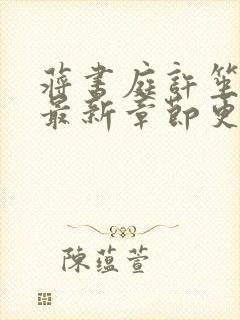 蔣書庭許笙
最新章節更
陳蘊萱